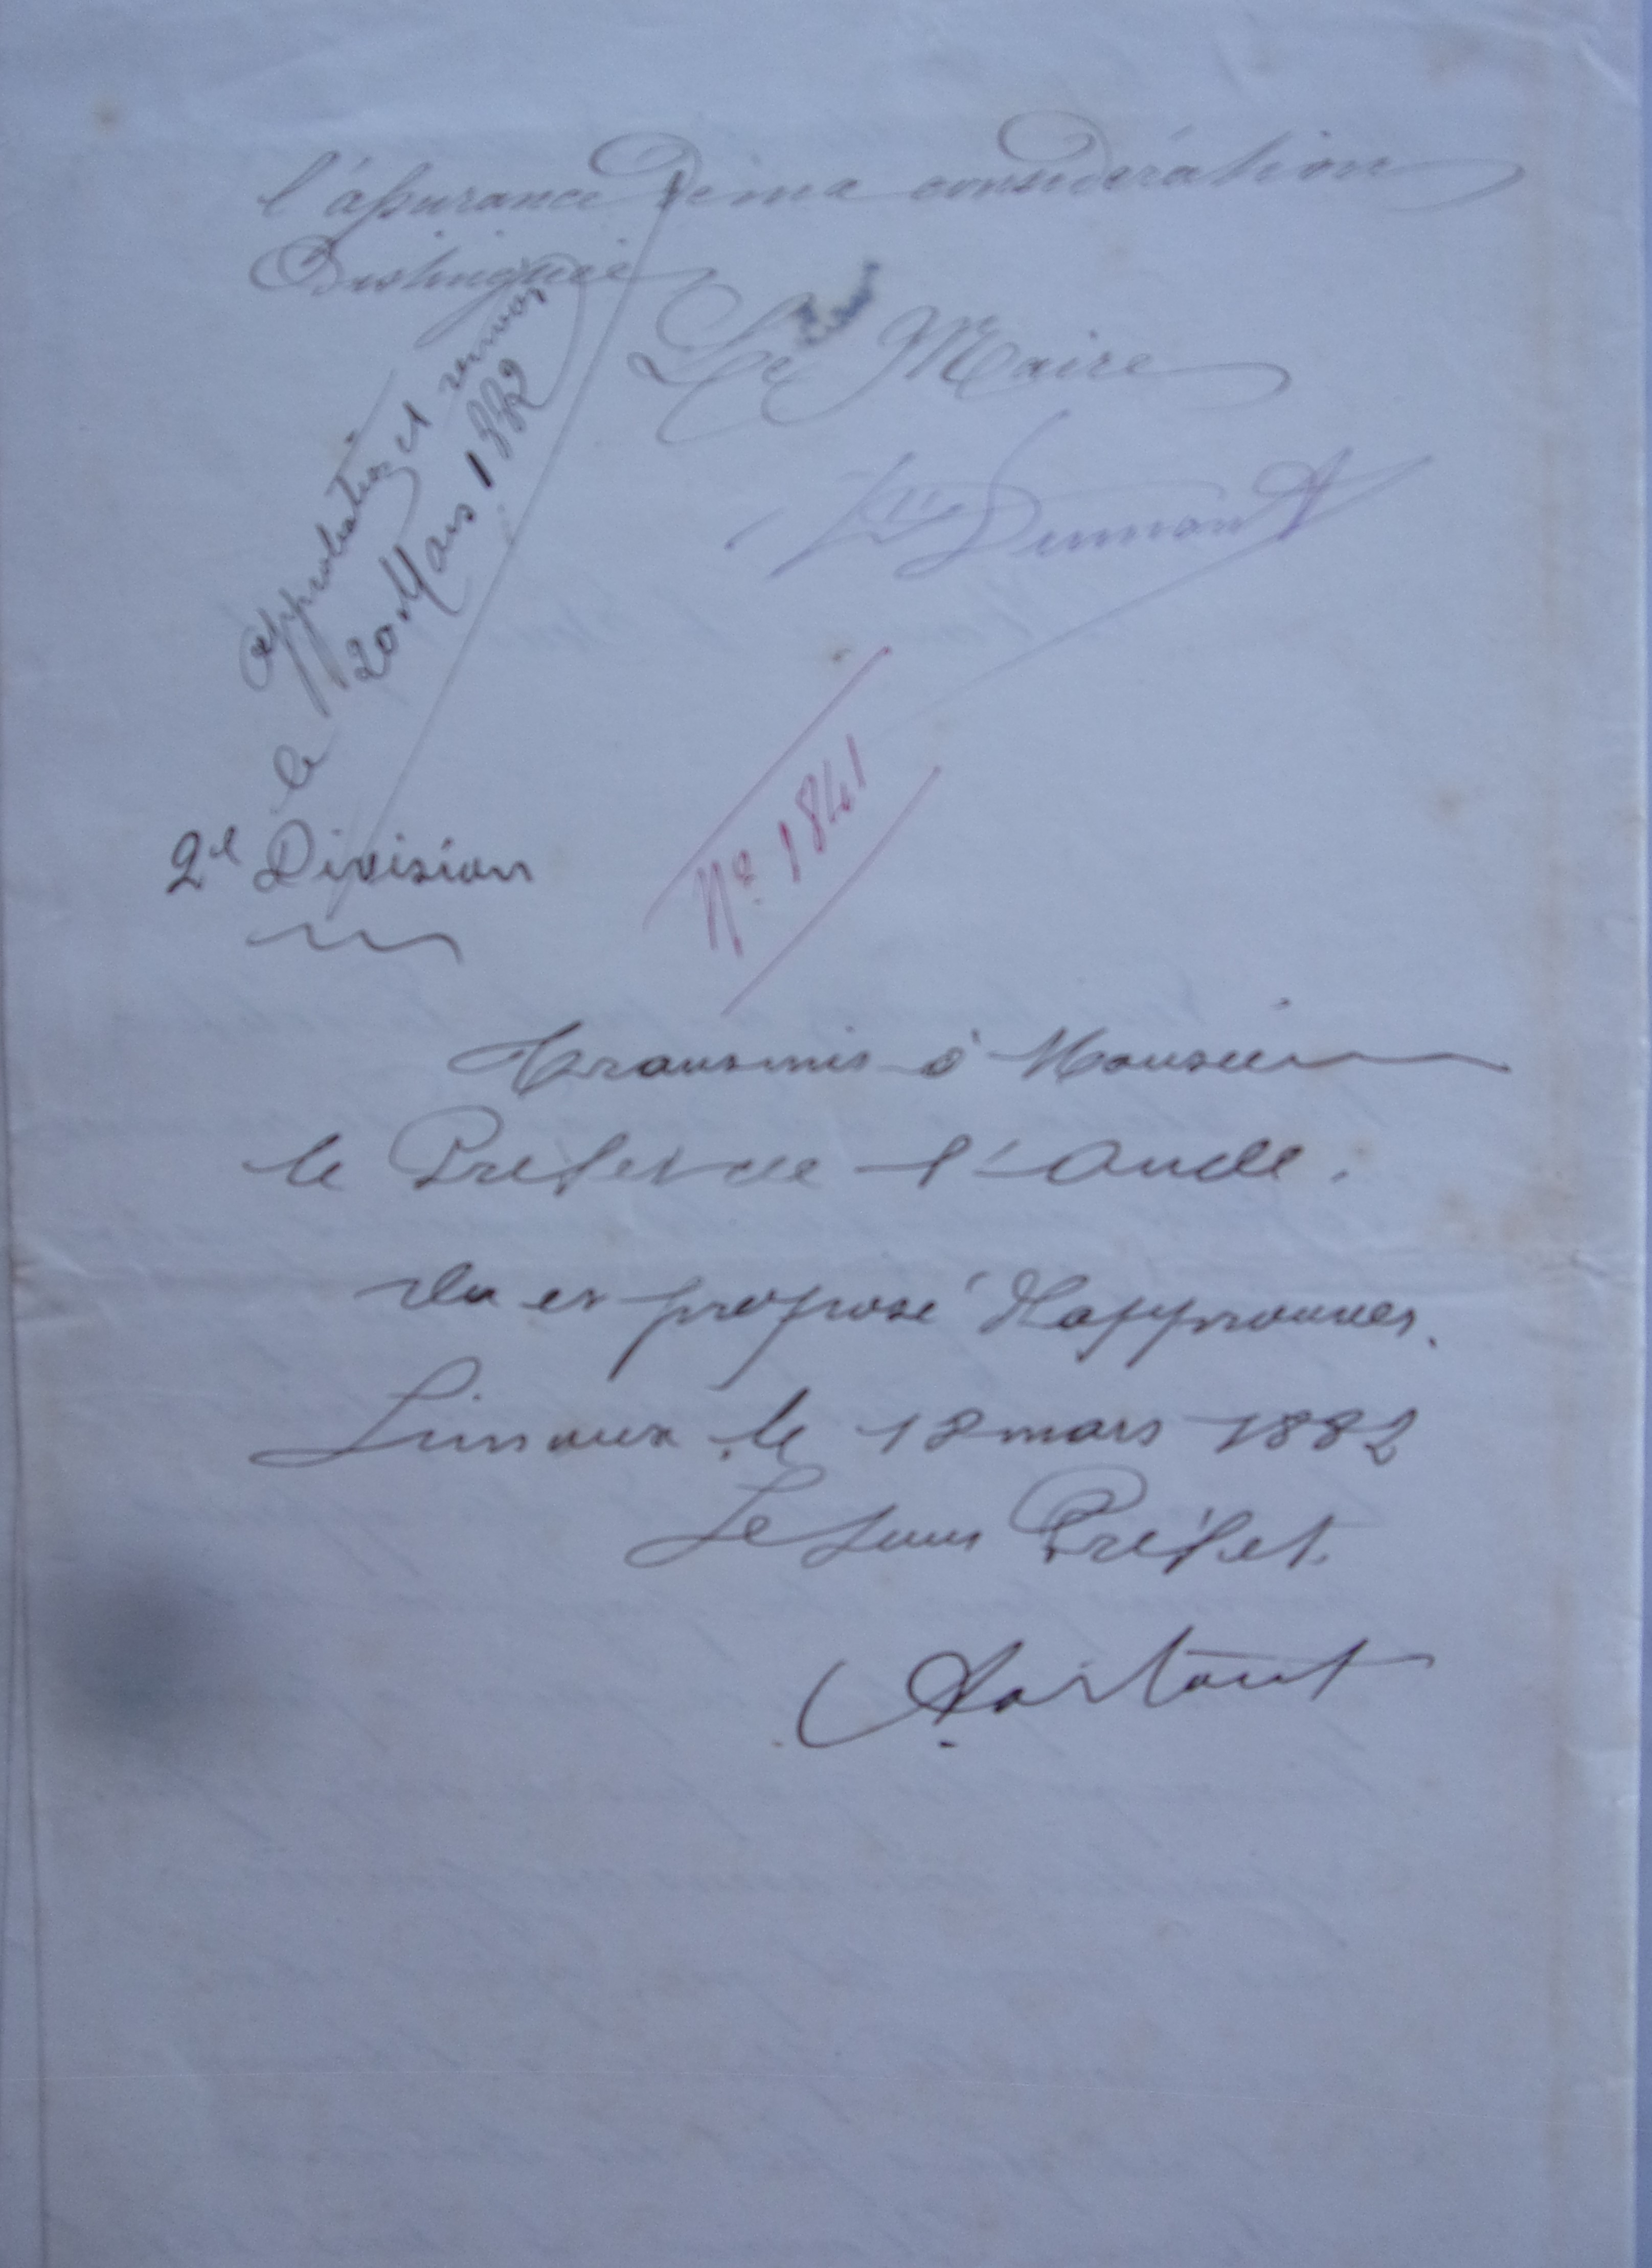 l'assurance de ma considération
Distinguée
Le Maire
Dumont
approbation et renvoi
le 20 Mars 1882
2e Division
No. 1841
Transmis à Monsieur
le Préfet de l'Aude.
Vu et proposé d'approuver.
Limoux le 18 mars 1882
Le Sous Préfet.